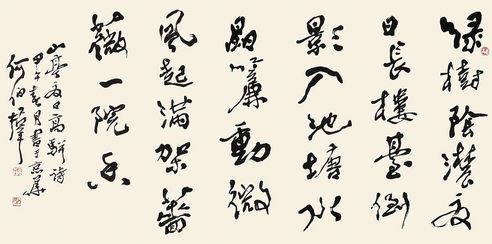 绿樹陰濃夏
日長樓臺倒
影入池塘水
晶簾動微
風起满架薔
薇一院香
山亭夏日高駢诗
甲午春月書于京華
何伯群